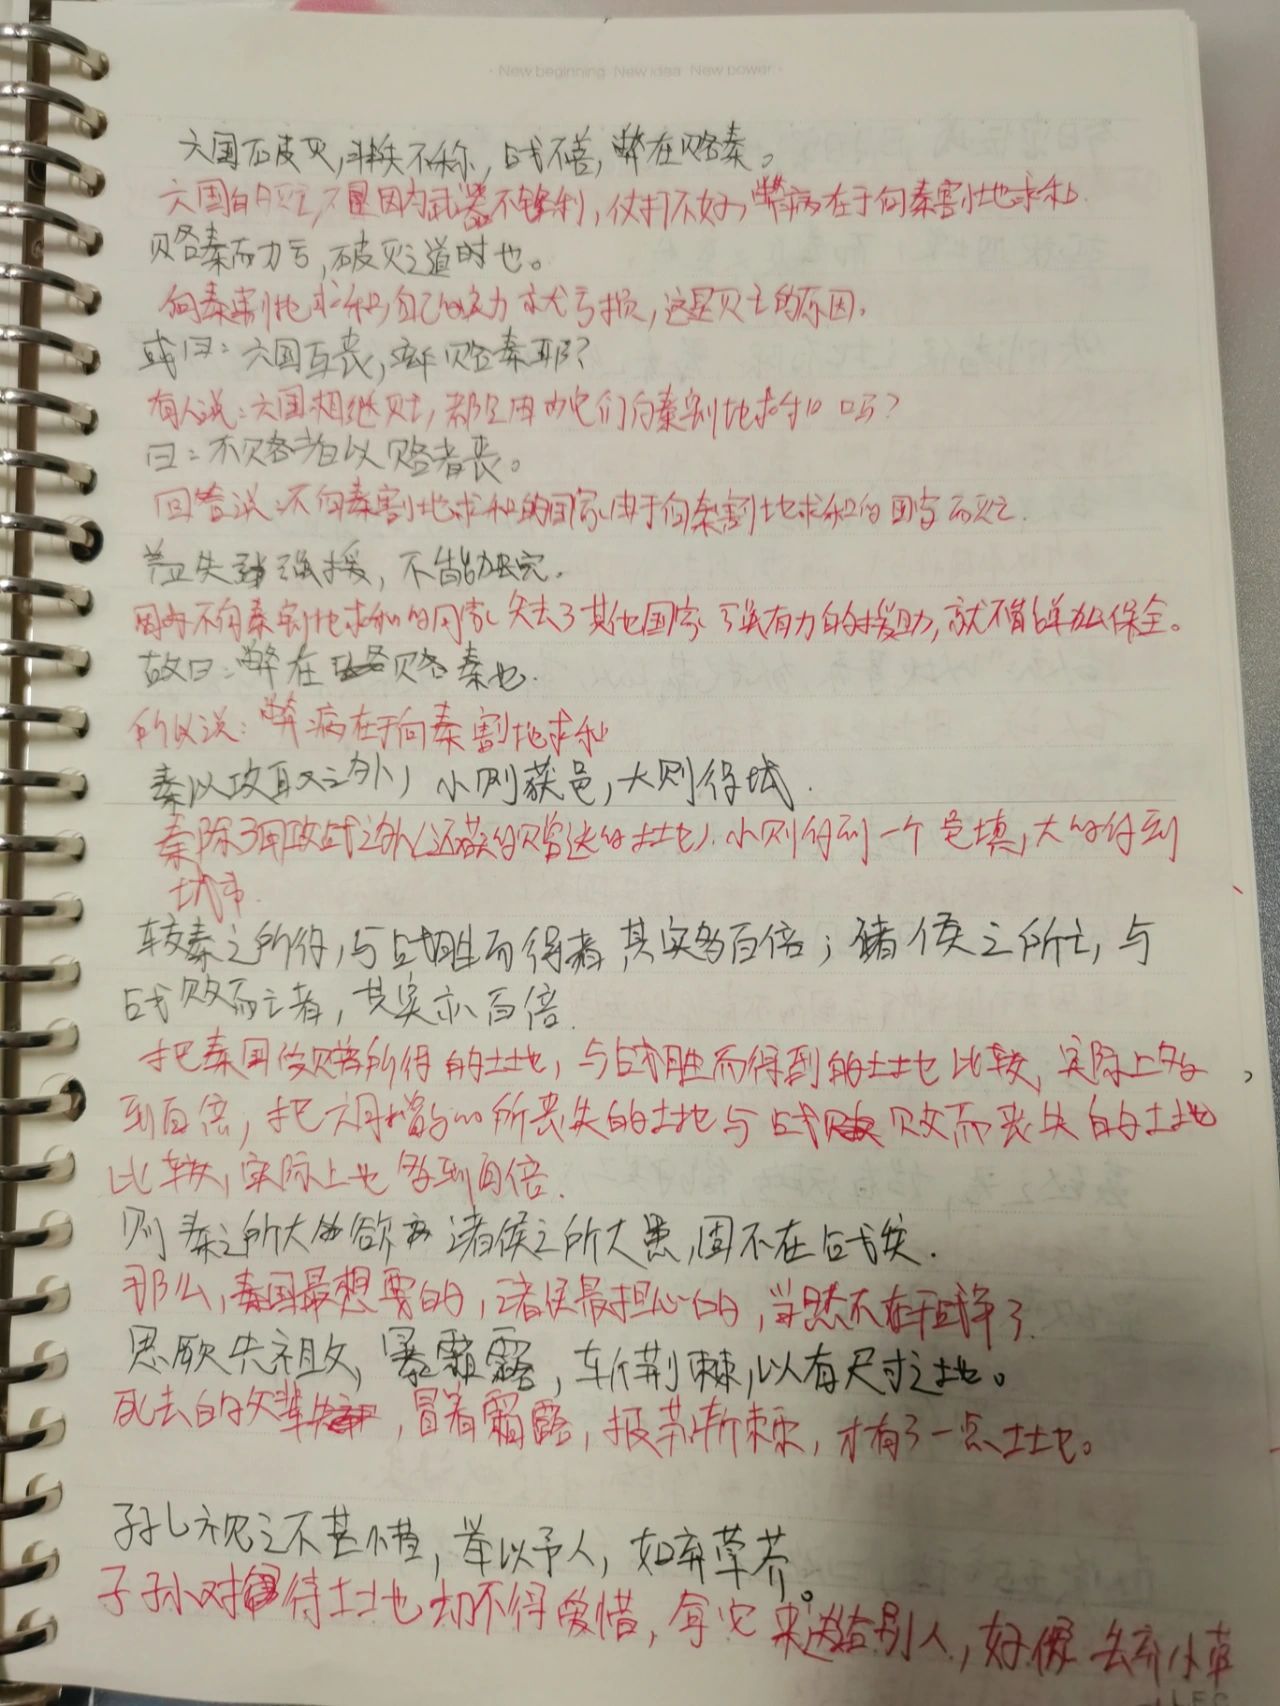 · New beginning New idea New power ·
六国破灭,非兵不利,战不善,弊在赂秦。
六国的灭亡,不是因为武器不锋利,仗打不好,弊病在于向秦割地求和
赂秦而力亏,破灭之道也。
向秦割地求和,自己的实力就亏损,这是灭亡的原因。
或曰:六国互丧,率赂秦耶?
有人说:六国相继灭亡,都是因为它们向秦割地求和吗?
曰:不赂者以赂者丧。
回答说:不向秦割地求和的国家,由于向秦割地求和的国家而灭亡.
盖失强援,不能独完.
因为不向秦割地求和的国家失去了其他国家强有力的援助,就不能单独保全。
故曰:弊在赂秦也.
所以说:弊病在于向秦割地求和
秦以攻取之外,小则获邑,大则得城.
秦除了用攻战之外(还获得贿赂送的土地),小则得到一个邑填,大的得到
城市.
较秦之所得,与战胜而得者,其实多百倍;诸侯之所亡,与
战败而亡者,其实亦百倍.
把秦国受贿赂所得的土地,与战胜而得到的土地比较,实际上多
到百倍,把六国所丧失的土地与战败而丧失的土地
比较,实际上也多到百倍.
则秦之所大欲,诸侯之所大患,固不在战矣.
那么,秦国最想要的,诸侯最担心的,当然不在于战争了.
思厥先祖父,暴霜露,斩荆棘,以有尺寸之地。
死去的父辈,冒着霜露,披荆斩棘,才有了一点土地。
子孙视之不甚惜,举以予人,如弃草芥。
子孙对待土地却不得爱惜,拿它来送给别人,好像丢弃小草